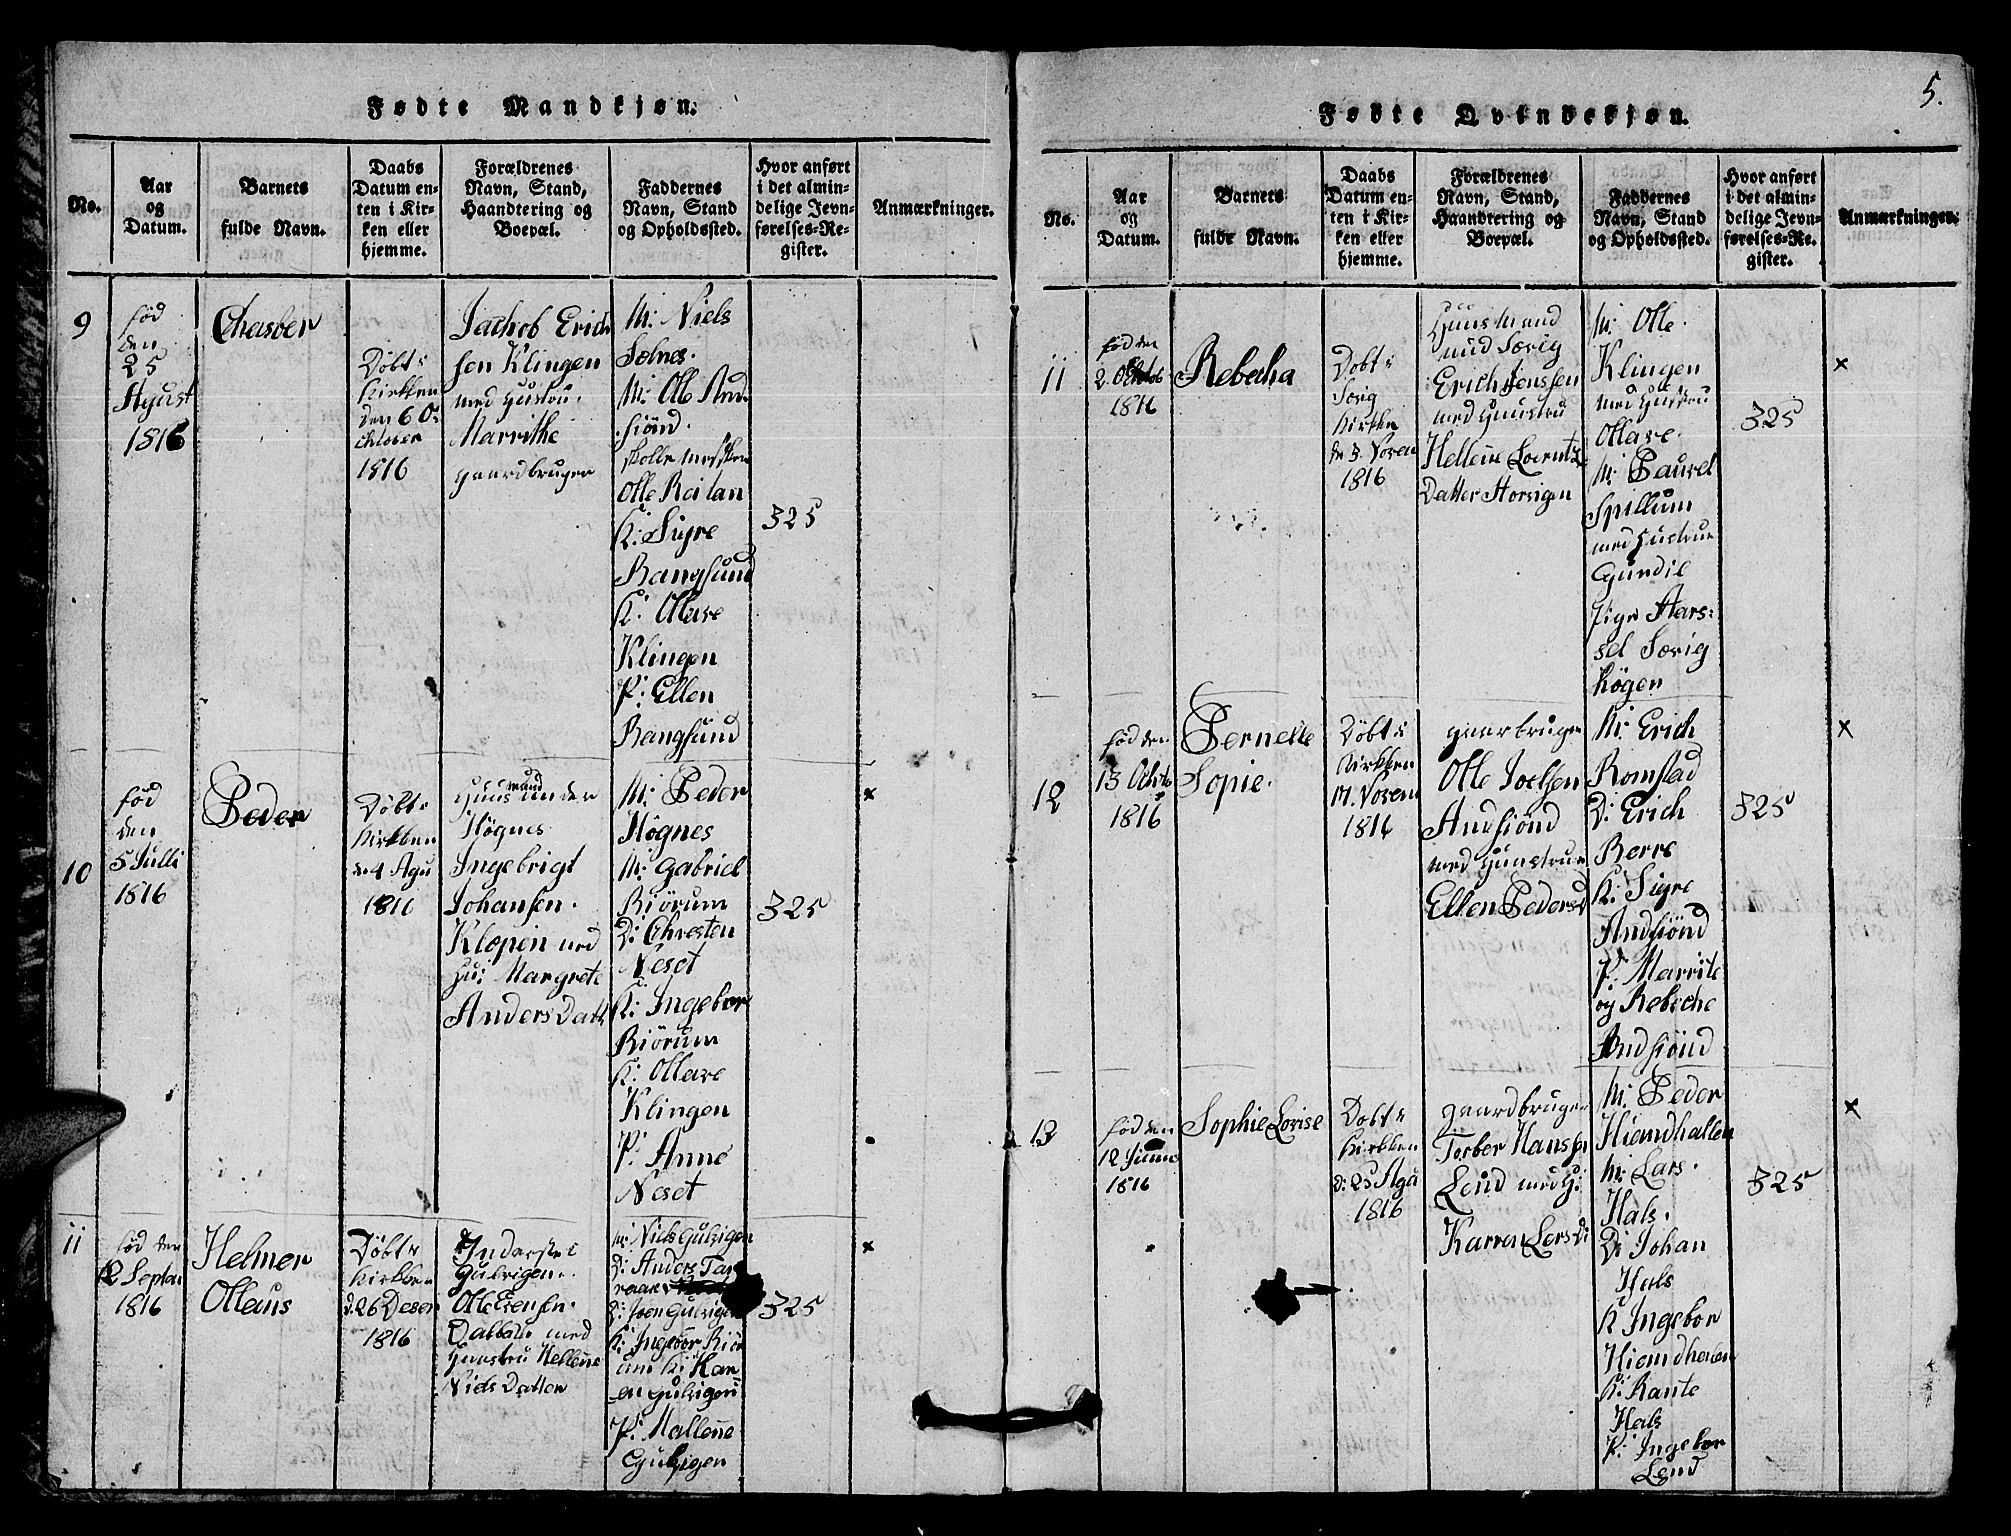 5.
Fødte Mandkjøn.
No.
Aar
og
Datum.
Barnets
fulde Navn.
Daabs
Datum en-
ten i Kir-
ken eller
hjemme.
Forældrenes
Navn, Stand,
Haandtering og
Boepæl.
Faddernes
Navn, Stand
og Opholdssted.
Hvor anført
i det almin-
delige Jevn-
førelses-Re-
gister.
Anmærkninger.
9
fød
den
25
Agust
1816
Chasber
Døbt i
Kirkken
den 6 O-
chtober
1816
Jachob Erich
sen Klingen
med Hustru.
Marrithe
gaardbruger
M: Niels
Selnes.
M: Olle And-
siønd.
Olle Reitan
K: Sigre
Rangsund
K: Ollave
Klingen
P: Ellen
Rangsund
325
10
fød
den
5 Julli
1816
Peder
Døbt i
Kirkken
de 4 Agu
1816
Huusmand under
Høgnes
Ingebrigt
Johansen.
Klopen med
Hu: Margrete
Anders Datt
M: Peder
Høgnes
M: Gabriel
Biørum
D: Chresten
Neset
K: Ingebor
Biørum
K: Ollave
Klingen
P: Anne
Neset
325
×
11
fød den
12 Septem
1816
Helmer
Ollaus
Døbt i
Kirkken
d. 26 Deser
1816
Inderste i
Gulvigen.
Olle Evensen.
med
Huustru Hellene
Niels Datter
M: Niels Gulvigen
D: Anders
D: Joen Gulvigen
K: Ingebor Biør
um K: Kar-
en Gulvigen
P: Mallene
Gulvigen
325
×
Fødte Qvindekjøn.
No.
Aar
og
Datum.
Barnets
fulde Navn.
Daabs
Datum en-
ten i Kir-
ken eller
hjemme.
Forældrenes
Navn, Stand,
Haandtering og
Boepæl.
Faddernes
Navn, Stand
og Opholdssted.
Hvor anført
i det almin-
delige Jevn-
førelses-Re-
gister.
Anmærkninger.
11
fød den
2. Ochtob
1816
Rebecha
Døbt i
Særig
Kirkke
de 3. Novem
1816
Huusmand
und Særig
Erich Jenssen
med Huustru
Hellene Loerntz
Datter Storvigen
M: Olle.
Klingen
med Hustru
Ollave.
M: Pauvel
Spillum
med Hustrue
Gundil
Pige Mars-
sel Særig
högen
325
×
12
fød den
13 Ochtb
1816
Pernelle
Sopie.
Døbt i
Kirkken
17. Novem
1816
gaarbruger
Olle Joelsen
Andsiönd
med Huustrue
Ellen Peders D
M: Erich
Romstad
D: Erich
Berre
K: Sigre
Andsiönd
P: Marrite
og Rebeche
Andsiönd
325
×
13
fød den
12 Junni
1816
Sophie Lovise
Døbt i
Kirkken
D: 25 Agu
1816
gaardbruger
Torber Hansen
Lend med H:
Karren Lers D:
M: Peder
Hiemdhallen
M: Lars.
Hals.
D: Johan
Hals
K Ingebor
Hiemdhalen
K: Rante
Hals
P: Ingebor
Lend
325
×